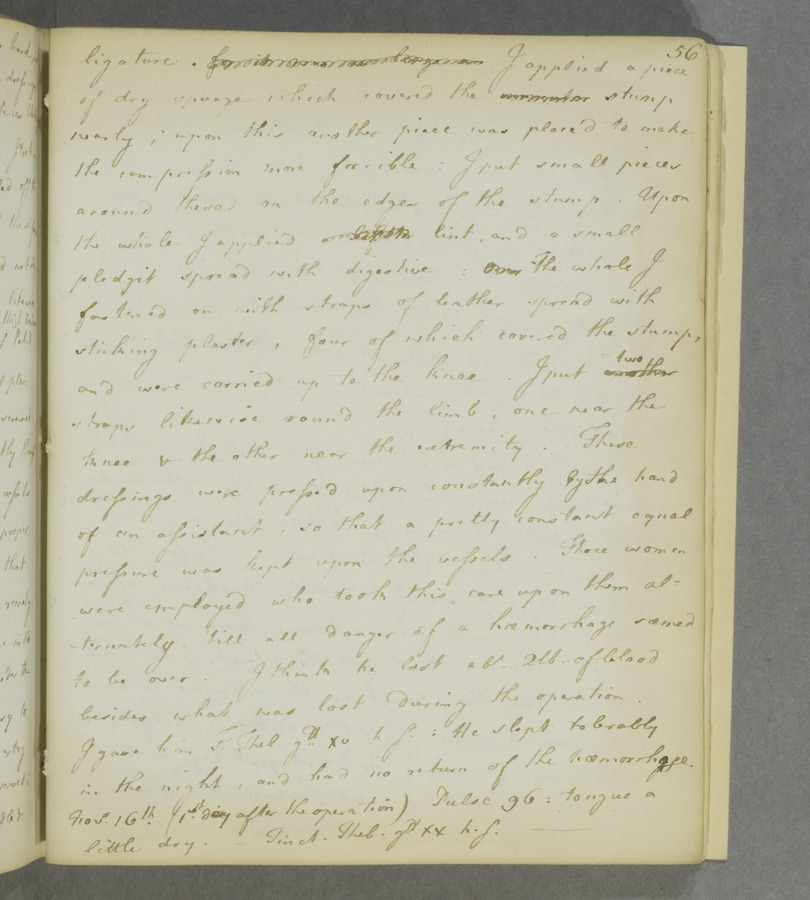 56
ligature. I applied a piece
of dry spunge which covered the stump
nearly; upon this another piece was placed to make
the compression more forcible: I put small pieces
around these on the edges of the stump. Upon
the whole I applied lint, and a small
pledgit spread with digestive: over the whole I
fastened on with straps of leather spread with
sticking plaster, four of which covered the stump,
and were carried up to the knee. I put two
straps likewise round the limb, one near the
knee & the other near the extremity. These
dressings were pressed upon constantly by the hand
of an assistant, so that a pretty constant equal
pressure was kept upon the vessels. Three women
were employed who took this care upon them al-
-ternately till all danger of a hæmorrhage seemed
to be over. I think he lost abt. 2lb. of blood
besides what was lost during the operation.
I gave him T. Theb. gtt xv h.s.: He slept tolerably
in the night, and had no return of the hæmorrhage.
Novr. 16th. (1st day after the operation) Pulse 96: tongue a
little dry. - Tinct. Theb. gtt xx h.s.